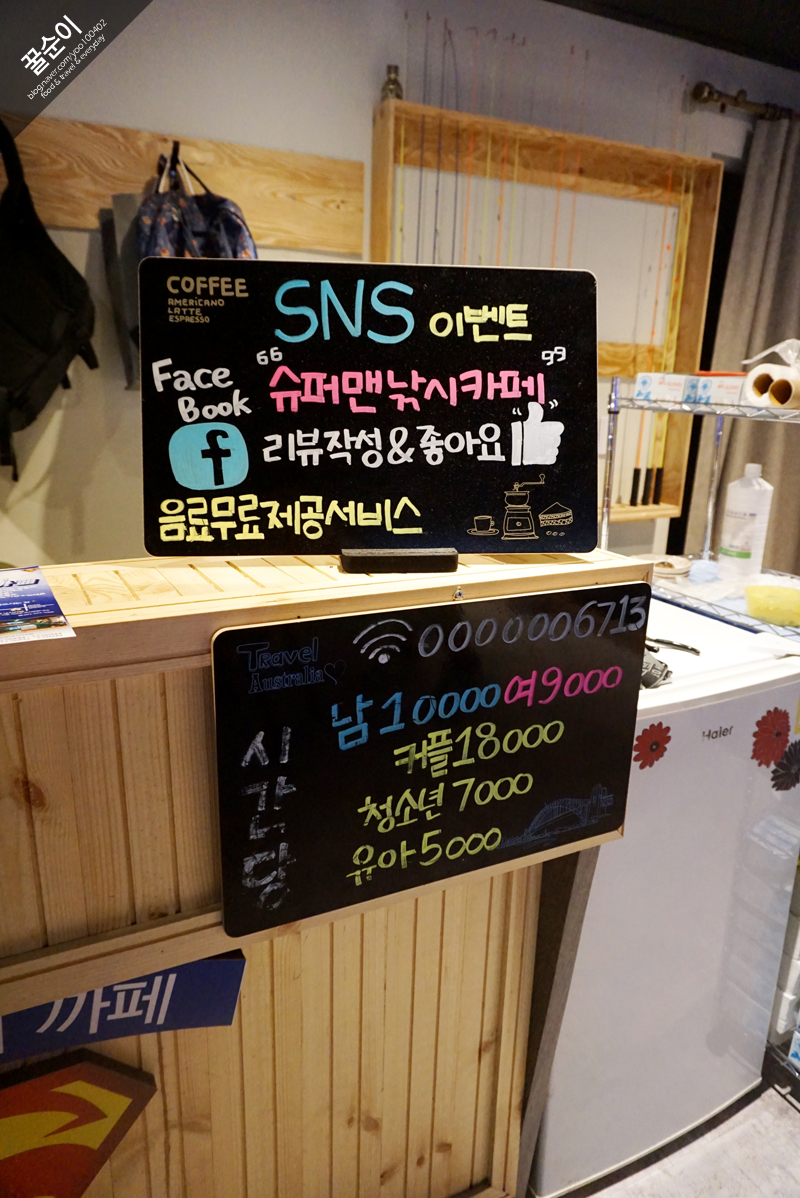 꿀순이
blog.naver.com/yoo100402
food & travel & everyday
COFFEE
AMERICANO
LATTE
ESPRESSO
SNS 이벤트
Face Book
"슈퍼맨낚시카페"
f
리뷰작성&좋아요
음료무료제공서비스
Travel
Australia
0000006713
시간당
남10000 여9000
커플18000
청소년 7000
유아5000
Haier
카페